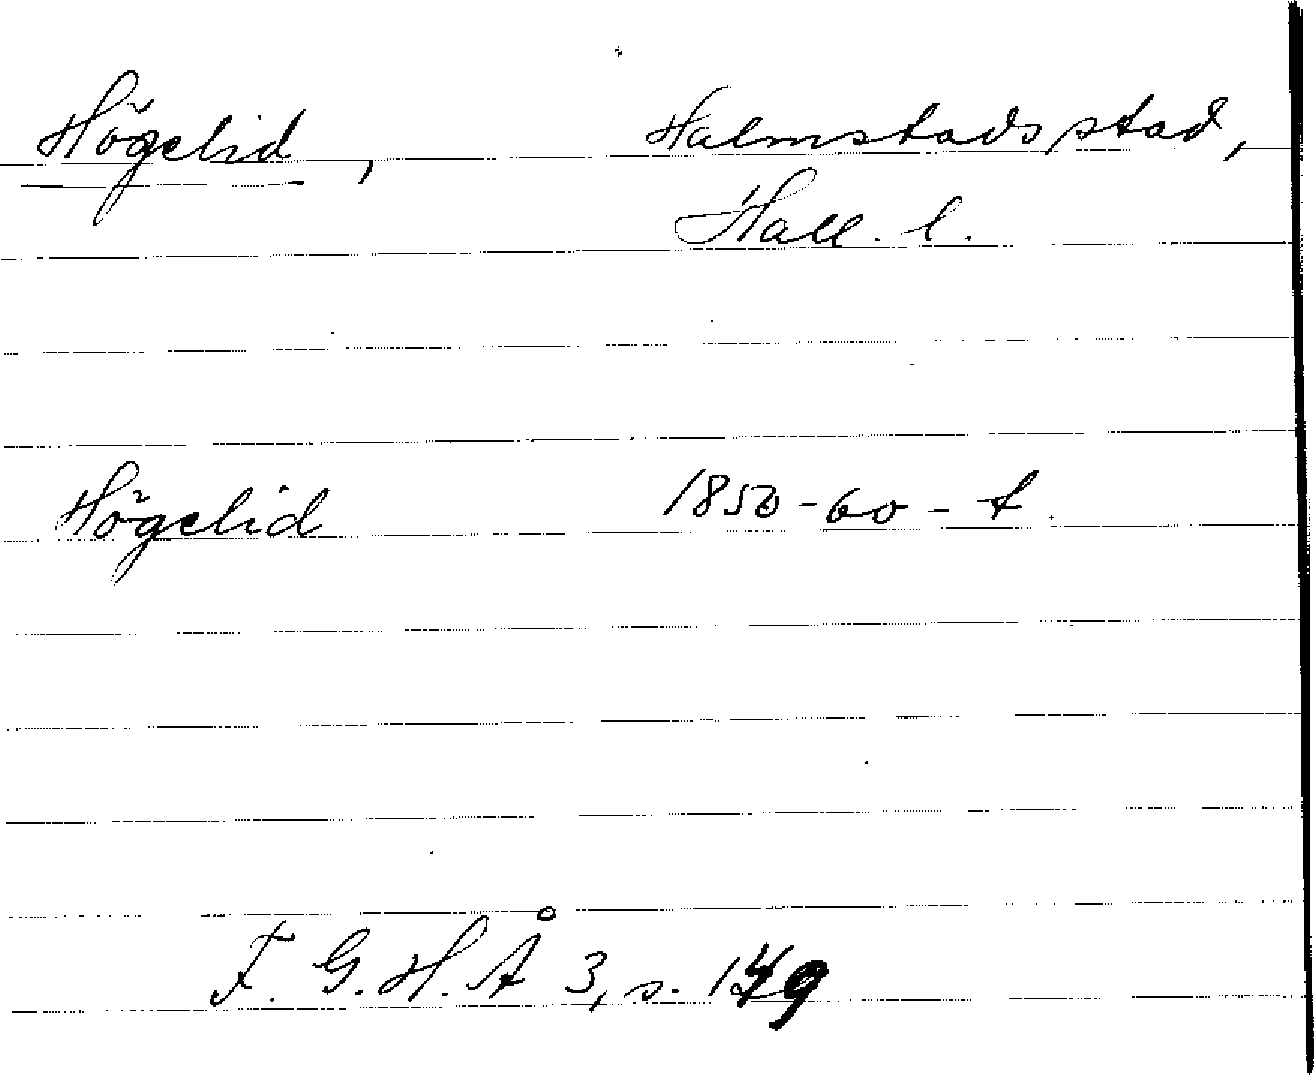 Högelid, Halmstads stad,
Hall. l.
Högelid 1850-60-t.
F. G. H. Å 3, s.